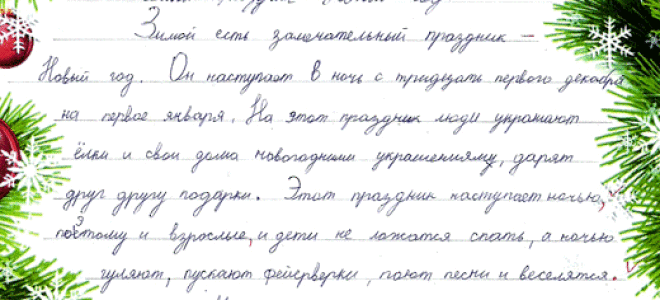 праздник Новый год
Зимой есть замечательный праздник –
Новый год. Он наступает в ночь с тридезать первого декабря
на первое января. На этот праздник люди украшают
ёлки и свои дома новогодними украшенияму, дарят
друг другу подарки. Этот праздник наступает ночью,
поэтому и взрослые, и дети не ложатся спать, а ночью
гуляют, пускают фейерверки, поют песни и веселятся.